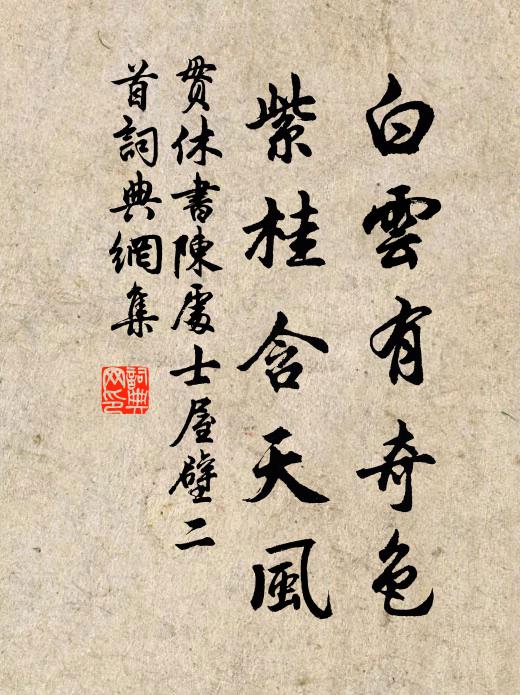 白雲有奇色
紫桂含天風
貫休書陳處士屋壁二
首詞典網集
詞典
网印